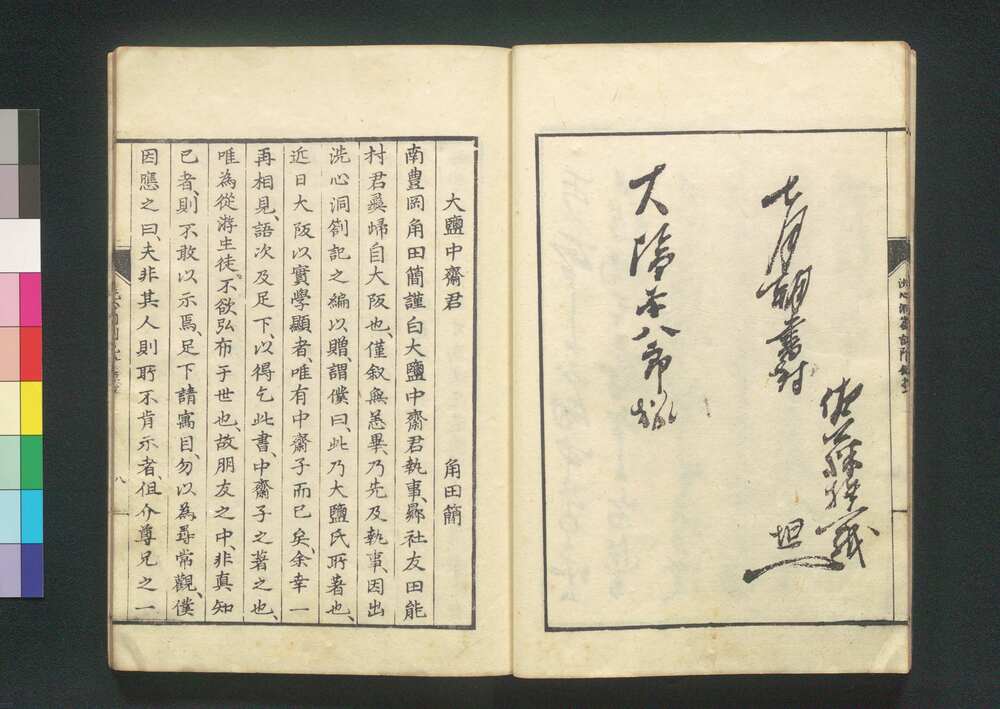 七月朔書封
佐藤捨蔵
坦
大塩平八郎様
大鹽中齋君
角田簡
南豊岡角田簡謹白大鹽中齋君執事、鄰社友田能
村君彜歸自大阪也、僅叙無恙畢、乃先及執事、因出
洗心洞劄記之編以贈、謂僕曰、此乃大鹽氏所著也、
近日大阪以實學顯者、唯有中齋子而已矣、余幸一
再相見、語次及足下、以得乞此書、中齋子之著之也、
唯為從游生徒、不欲弘布于世也、故朋友之中、非真知
己者、則不敢以示焉、足下請寓目、勿以為尋常觀、僕
因應之曰、夫非其人則所不肯示者、但介尊兄之一